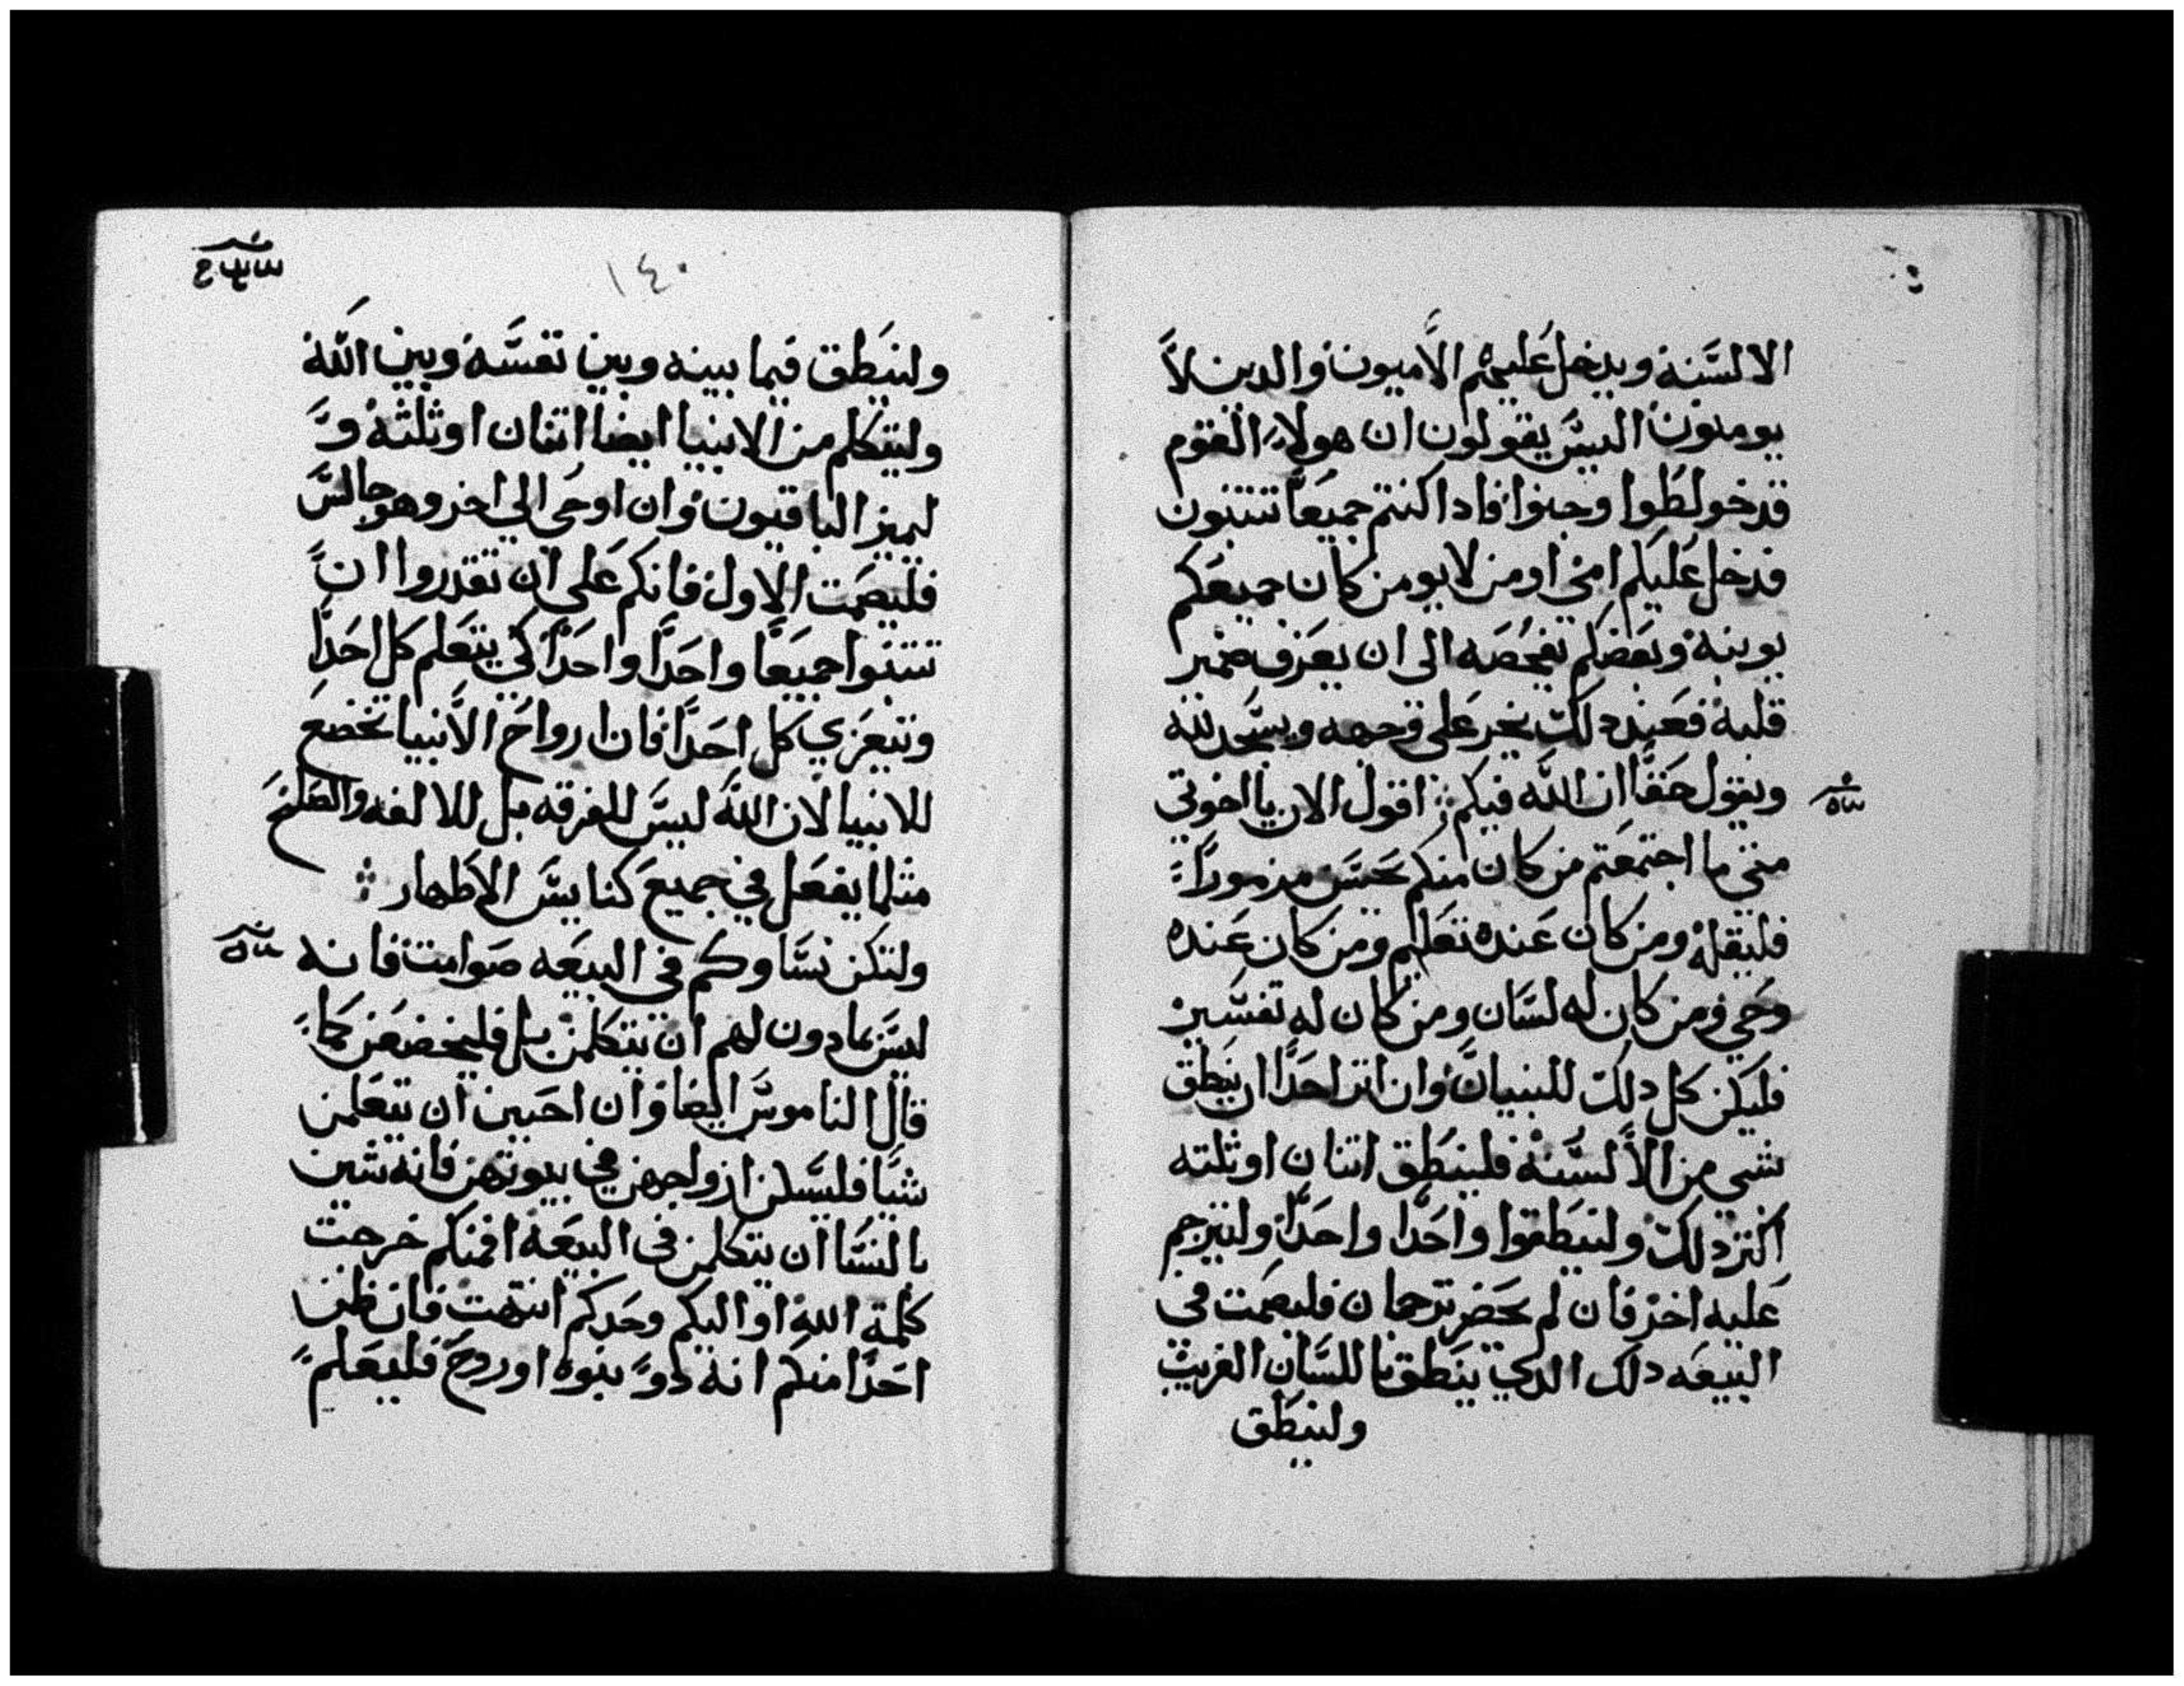 الالسنة ويدخل عليهم الاميون والدين لا
يومنون اليس يقولون ان هولاء القوم
قد خولطوا وجنوا فادا كنتم جميعا تتنبون
فدخل عليكم امي او من لا يومن كان جميعكم
يوبنه وبعضكم يفحصه الى ان يعرف ضمير
قلبه فعند دلك يخر على وجهه ويسجد لله
ويقول حقا ان الله فيكم اقول الان يا اخوتي
متى ما اجتمعتم من كان منكم يحسن مزمورا
فليقله ومن كان عنده تعليم ومن كان عنده
وحي ومن كان له لسان ومن كان له تفسير
فليكن كل دلك للبنيان وان اثر احدا ان ينطق
بشي من الالسنة فلينطق اتنان او تلته
اكتر دلك ولينطقوا واحدا واحدا وليترجم
عليه اخر فان لم يحضر ترجمان فليصمت في
البيعه دلك الدي ينطق باللسان الغريب
ولينطق
١٤٠
ولينطق فيما بينه وبين نفسه وبين الله
وليتكلم من الانبيا ايضا اتنان او تلته و
ليميز الباقيون وان اوحى الي اخر وهو جالس
فليصمت الاول فانكم على ان تقدروا ان
تتنبوا جميعا واحدا واحدا كي يتعلم كل احدا
ويتعزي كل احدا فان ارواح الانبيا تخضع
للانبيا لان الله ليس للفرقه بل للالفه والصلح
متلما يفعل في جميع كنايس الاطهار
ولتكن نساوكم في البيعه صوامت فانه
ليس مادون لهم ان يتكلمن بل فليخضعن كما
قال الناموس ايضا وان احبين ان يتعلمن
شيا فليسلن ازواجهن في بيوتهن فانه شين
بالنسا ان يتكلمن في البيعه افمنكم خرجت
كلمة الله او اليكم وحدكم انتهت فان ظن
احدا منكم انه دو نبوه او روح فليعلم